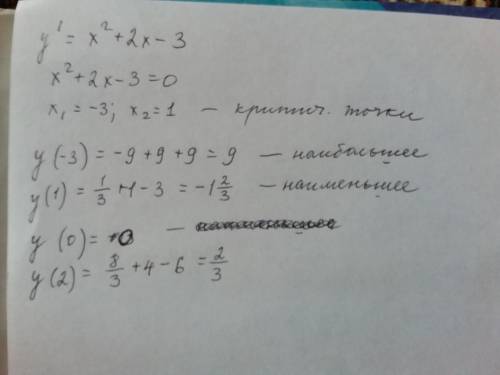 y' = x² + 2x - 3
x² + 2x - 3 = 0
x₁ = -3; x₂ = 1 — критич. точки
y(-3) = -9 + 9 + 9 = 9 — наибольшее
y(1) = 1/3 + 1 - 3 = -1 2/3 — наименьшее
y(0) = 0 —
y(2) = 8/3 + 4 - 6 = 2/3